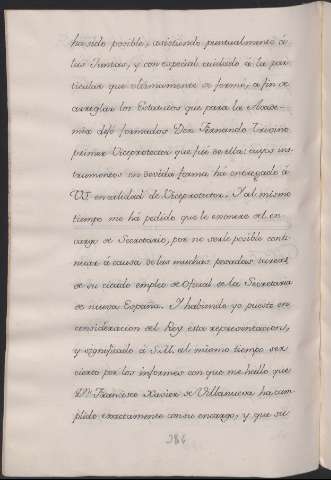 ha sido posible, asistiendo puntualmente á
las Juntas, y con especial cuidado á la par
ticular que ultimamente se formó, á fin de
arreglar los Estatutos que para la Acade-
mia dejó formados Don Fernando Trivino
primer Viceprotector que fué de ella: cuyos ins
trumentos en devida forma ha entregado á
VS en calidad de Viceprotector. Y al mismo
tiempo me há pedido que le exonere del en
cargo de Secretario, por no serle posible conti
nuar á causa de las muchas pesadas tareas
de su citado empleo de Oficial de la Secretaria
de nueva España. Y habiendo yo puesto en
consideracion del Rey esta representacion,
y significado á S.M. al mismo tiempo ser
cierto por los informes con que me hallo que
Dn Francisco Xavier de Villanueva ha cum
plido exactamente con su encargo, y que su
286